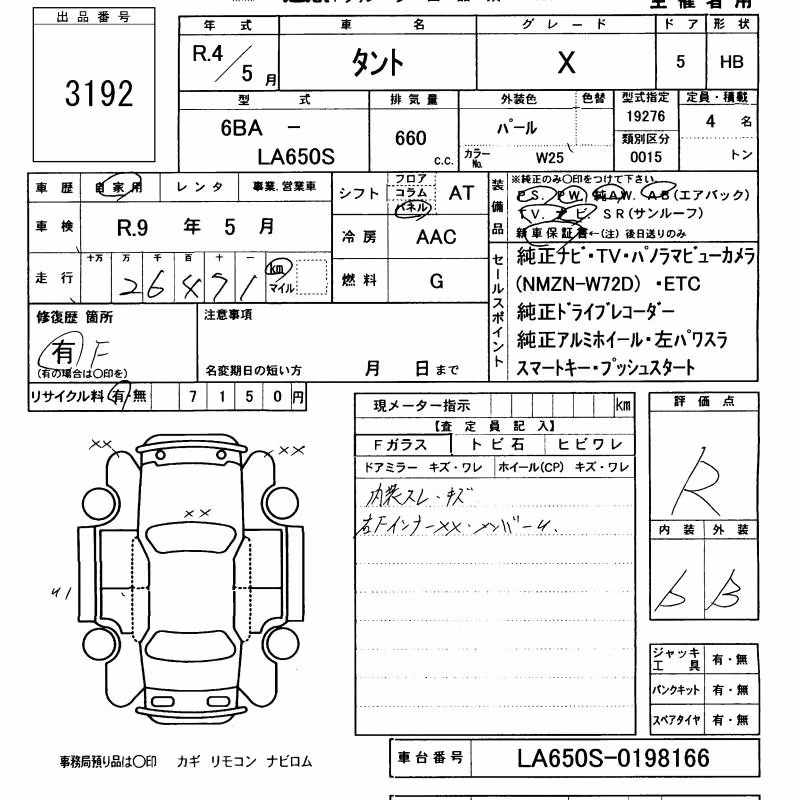 出品番号
3192
年式 車名 グレード ドア 形状
R.4/5月 タント X 5 HB
型式 排気量 外装色 色替 型式指定 定員・積載
19276
6BA - 660 c.c. パール 4 名
類別区分
LA650S カラーNo. W25 0015 トン
車歴 自家用 レンタ 事業.営業車
シフト フロア コラム パネル AT
装備品 ※純正のみ○印をつけて下さい。
PS. PW. 純AW. AB(エアバック)
TV. ナビ SR(サンルーフ)
新車保証書←(注)後日送りのみ
車検 R.9 年 5 月
冷房 AAC
走行 十万 万 千 百 十 一
26471 km マイル
燃料 G
セールスポイント
純正ナビ・TV・パノラマビューカメラ
(NMZN-W72D) ・ETC
純正ドライブレコーダー
純正アルミホイール・左パワスラ
スマートキー・プッシュスタート
修復歴 箇所
有 F
(有の場合は○印を)
注意事項
名変期日の短い方 月 日まで
リサイクル料 有・無 7150円
現メーター指示 km
評価点
【査定員記入】
Fガラス トビ石 ヒビワレ
ドアミラー キズ・ワレ ホイール(CP) キズ・ワレ
内装スレ・キズ
右Fインナーxx・メンバーu.
R
内装 外装
b B
xx
xx
xx
u1
ジャッキ工具 有・無
パンクキット 有・無
スペアタイヤ 有・無
事務局預り品は○印 カギ リモコン ナビロム
車台番号 LA650S-0198166